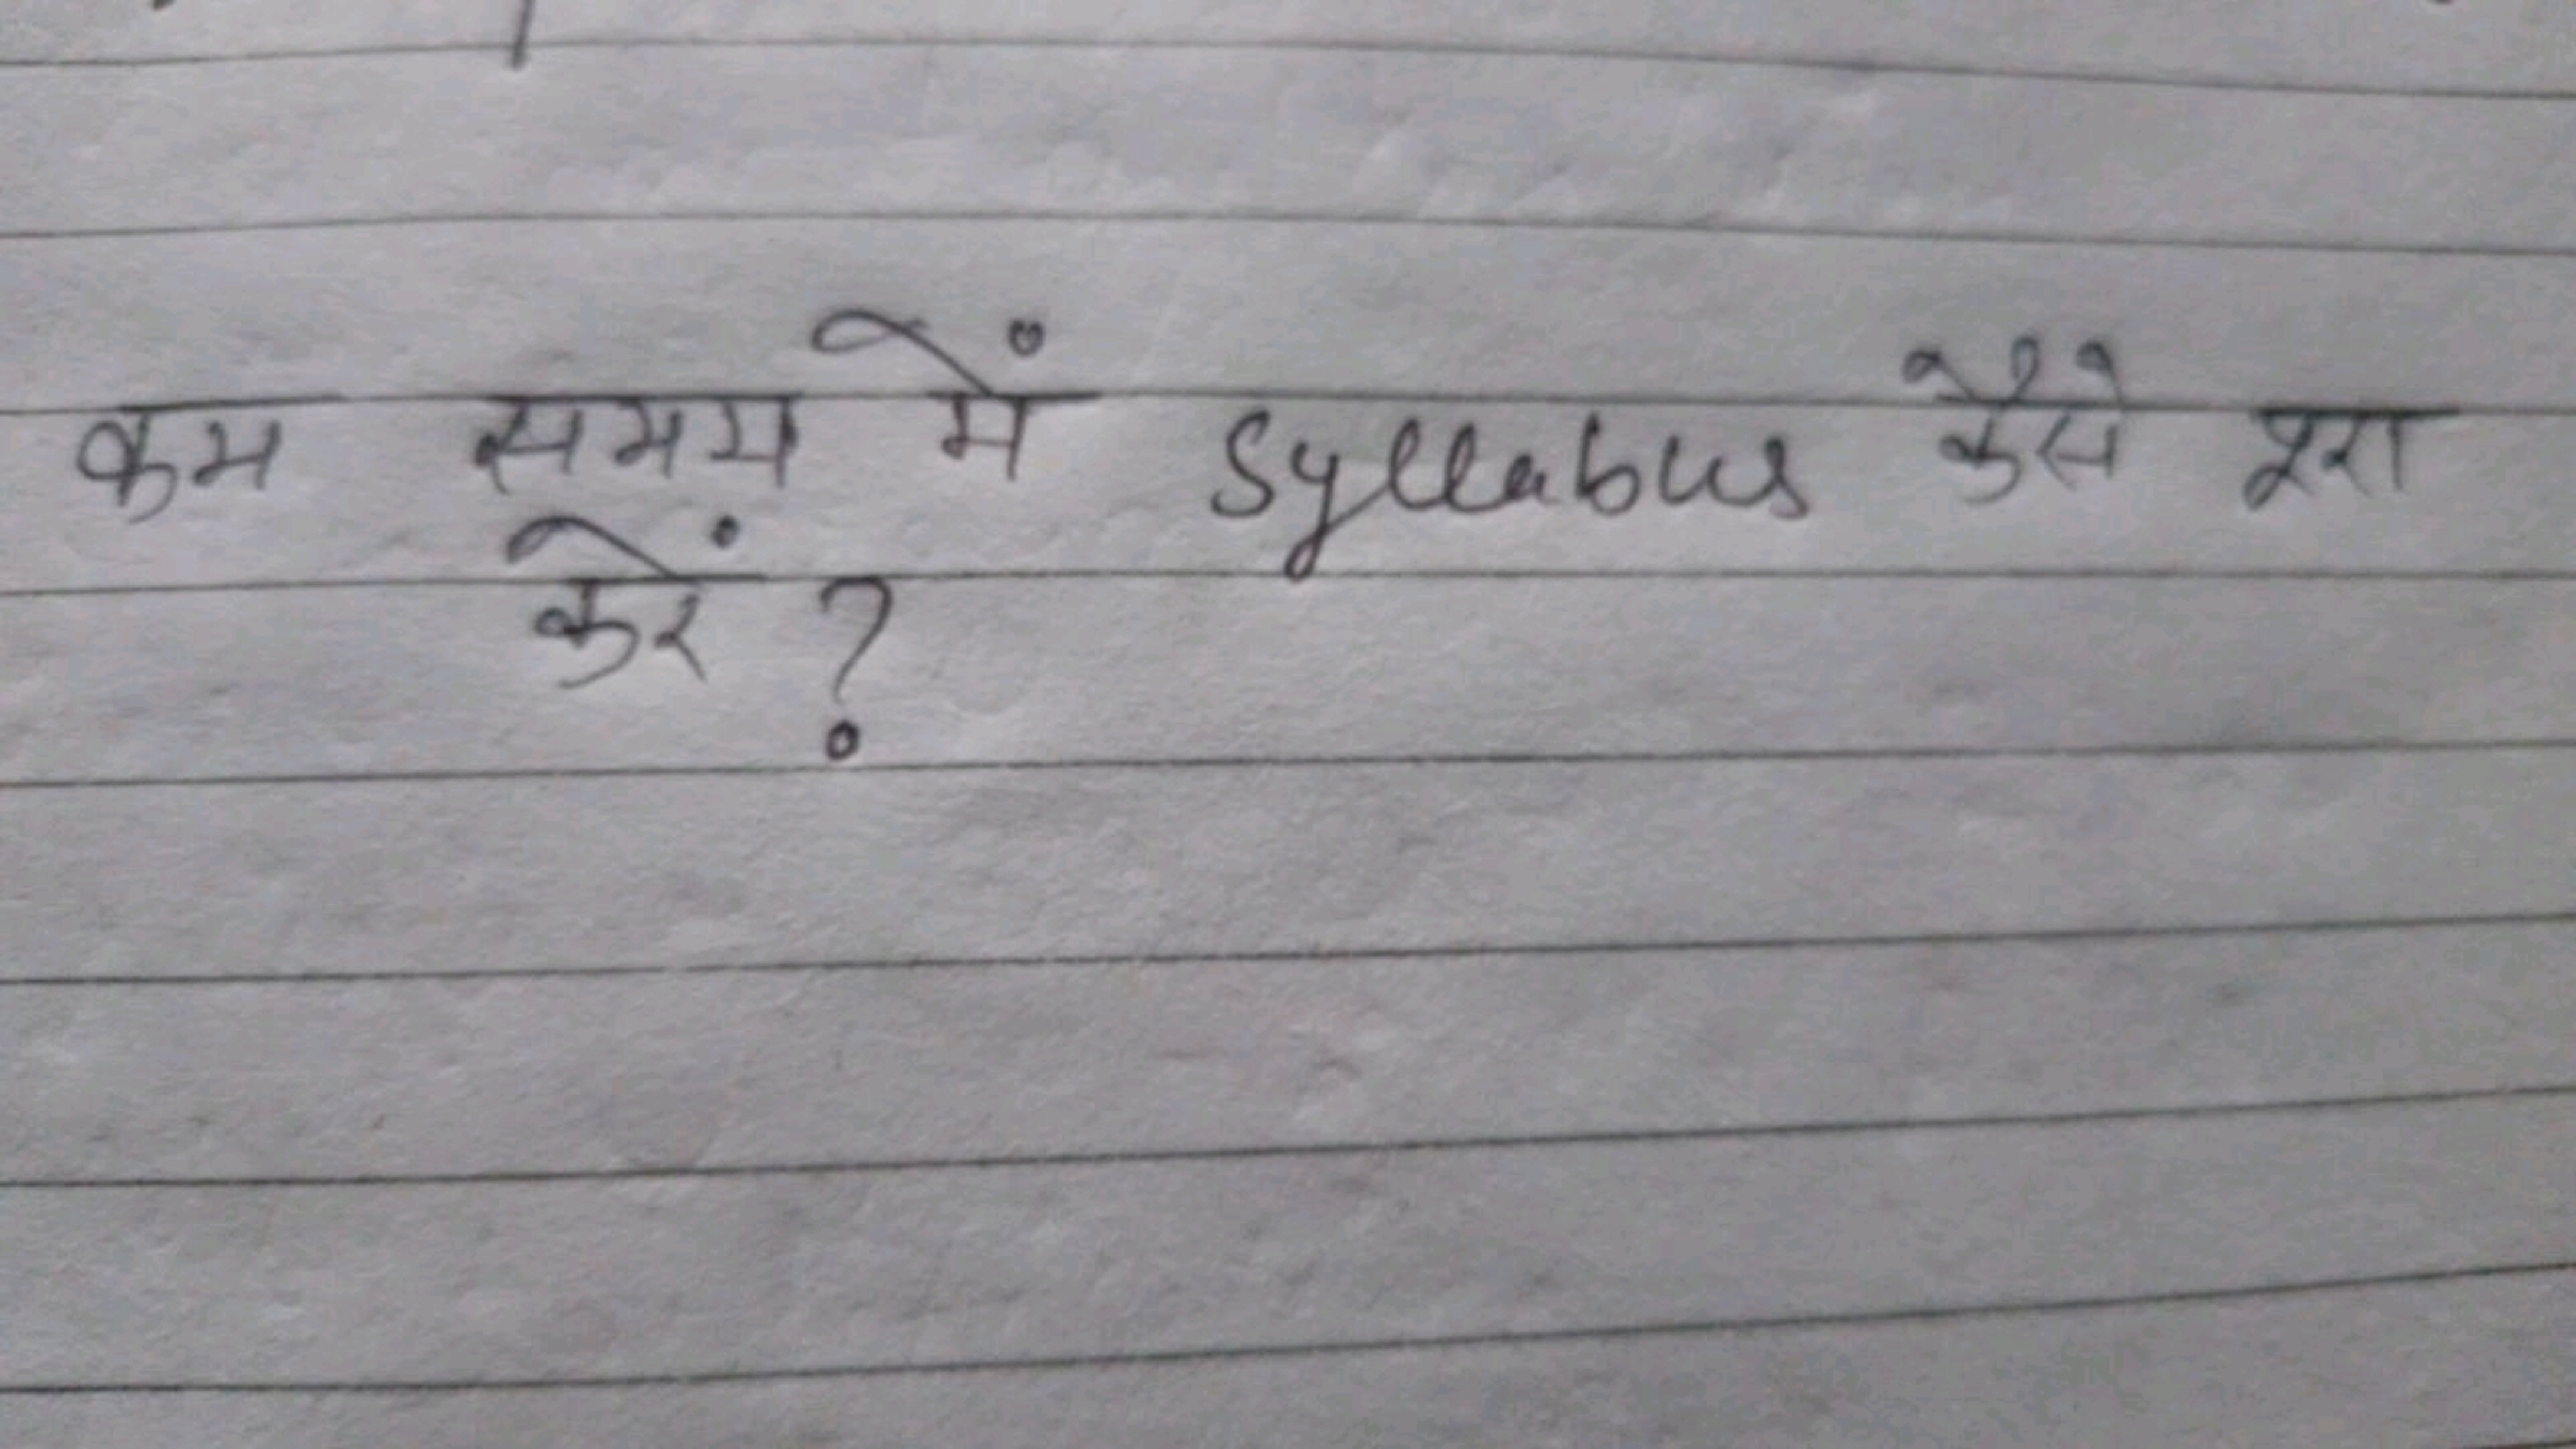 कम समय में Syllabus कैसे पूरा
करें ?